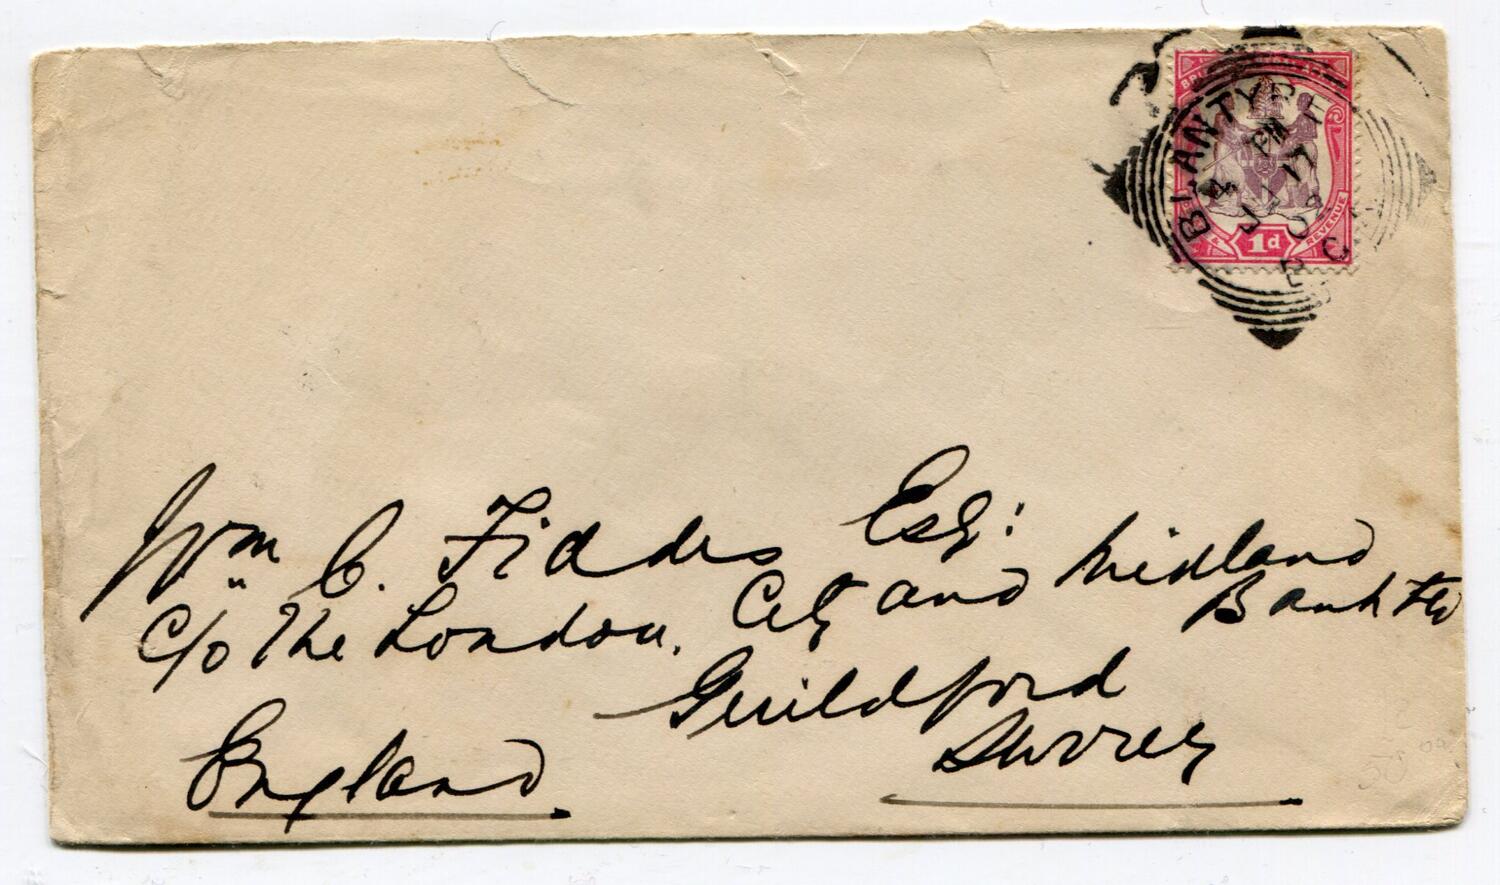 BLANTYRE
PM
4
JY 17
02
B.C.A.
REVENUE
1d
Wm C. Fiddes Esq:
C/o The London, City and Midland
Bank Ltd
Guildford
Surrey
England.